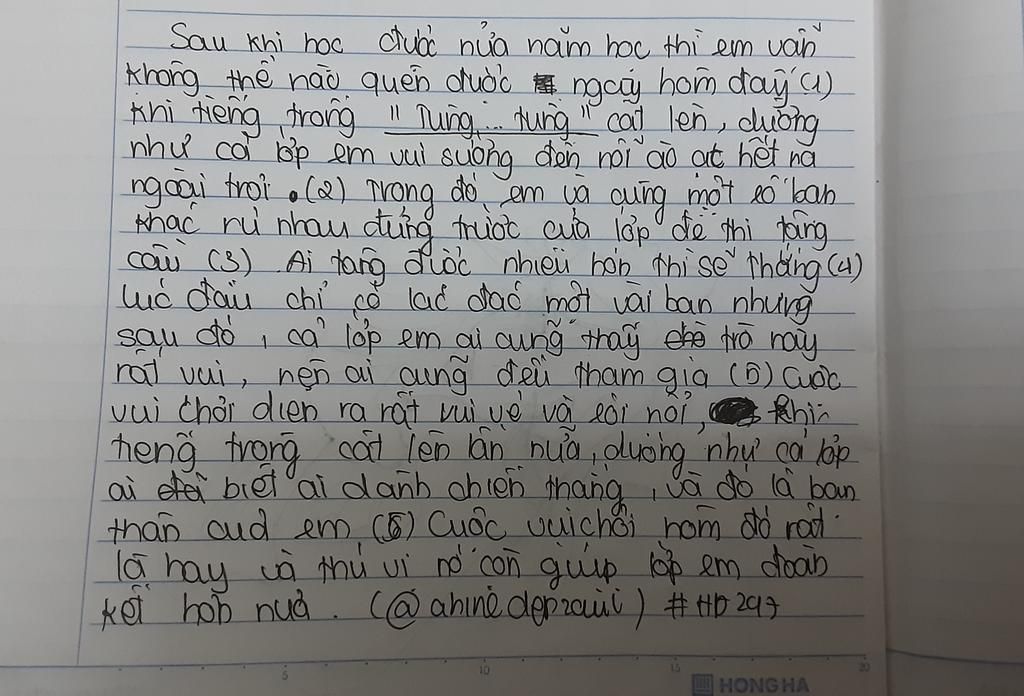 Sau khi học được nửa năm học thì em vẫn
không thể nào quên được ngày hôm đấy (1)
khi tiếng trống "Tùng... tùng" cất lên, dường
như cả lớp em vui sướng đến nỗi ào ạt hết ra
ngoài trời. (2) Trong đó, em và cùng một số bạn
khác rủ nhau đứng trước cửa lớp để thi tâng
cầu (3). Ai tâng được nhiều hơn thì sẽ thắng (4)
lúc đầu chỉ có lác đác một vài bạn nhưng
sau đó, cả lớp em ai cũng thấy trò này
rất vui, nên ai cũng đều tham gia (5) Cuộc
vui chơi diễn ra rất vui vẻ và sôi nổi, khi
tiếng trống cất lên lần nữa, dường như cả lớp
ai biết ai dành chiến thắng, và đó là bạn
thân của em (6) Cuộc vui chơi hôm đó rất
là hay và thú vị nó còn giúp lớp em đoàn
kết hơn nữa. (@ahinedepzauii) #HD297
HONG HA
5 10 15 20